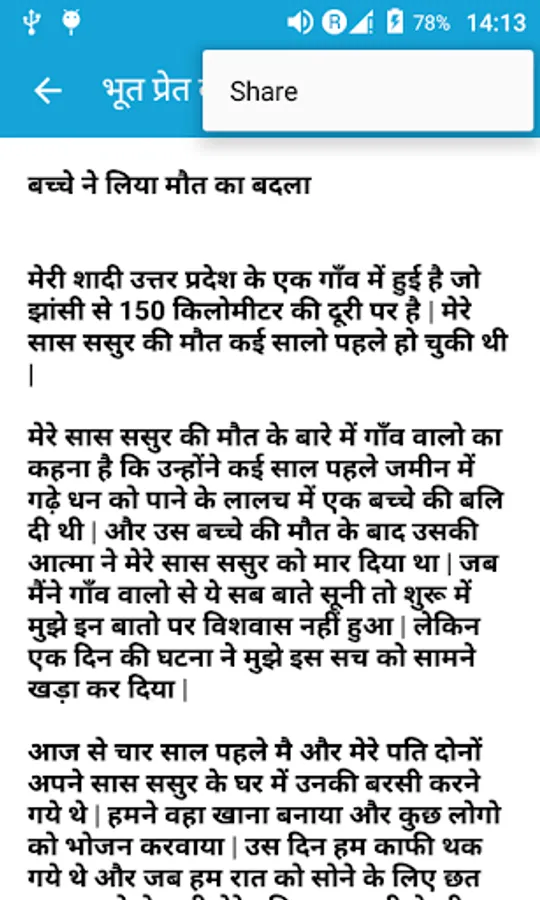 78% 14:13
भूत प्रेत
Share
बच्चे ने लिया मौत का बदला
मेरी शादी उत्तर प्रदेश के एक गाँव में हुई है जो
झांसी से 150 किलोमीटर की दूरी पर है | मेरे
सास ससुर की मौत कई सालो पहले हो चुकी थी
|
मेरे सास ससुर की मौत के बारे में गाँव वालो का
कहना है कि उन्होंने कई साल पहले जमीन में
गढ़े धन को पाने के लालच में एक बच्चे की बलि
दी थी | और उस बच्चे की मौत के बाद उसकी
आत्मा ने मेरे सास ससुर को मार दिया था | जब
मैंने गाँव वालो से ये सब बाते सूनी तो शुरू में
मुझे इन बातो पर विशवास नहीं हुआ | लेकिन
एक दिन की घटना ने मुझे इस सच को सामने
खड़ा कर दिया |
आज से चार साल पहले मै और मेरे पति दोनों
अपने सास ससुर के घर में उनकी बरसी करने
गये थे | हमने वहा खाना बनाया और कुछ लोगो
को भोजन करवाया | उस दिन हम काफी थक
गये थे और जब हम रात को सोने के लिए छत